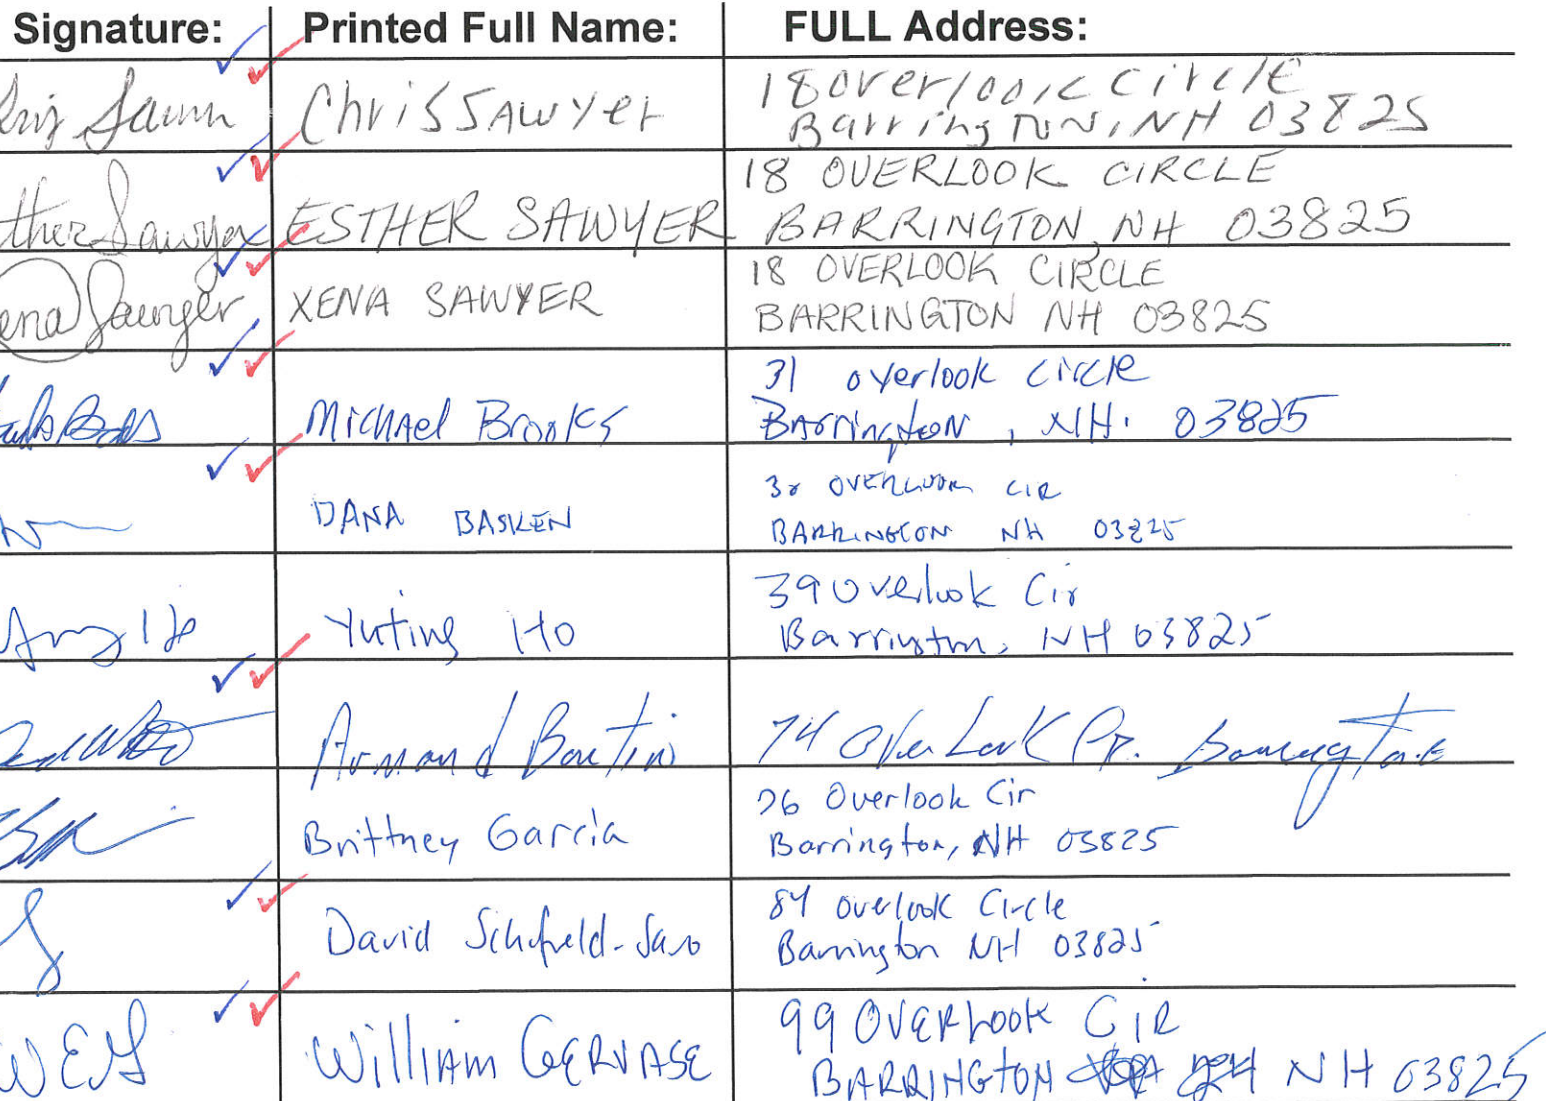 Signature: Printed Full Name: FULL Address:
Chris Sawyer 18 Overlook Circle
Barrington, NH 03825
Sawyer ESTHER SAWYER 18 OVERLOOK CIRCLE
BARRINGTON, NH 03825
Sawyer XENA SAWYER 18 OVERLOOK CIRCLE
BARRINGTON NH 03825
Michael Brooks 31 overlook circle
Barrington, NH. 03825
DANA BASKEN OVERLOOK CIR
BARRINGTON NH 03825
Yuting Ho 39 Overlook Cir
Barrington, NH 03825
Armand 74 OverLook Barrington
Brittney Garcia 76 Overlook Cir
Barrington, NH 03825
David 84 Overlook Circle
Barrington NH 03825
WEG William GERVASE 99 OVERLOOK CIR
BARRINGTON NH 03825